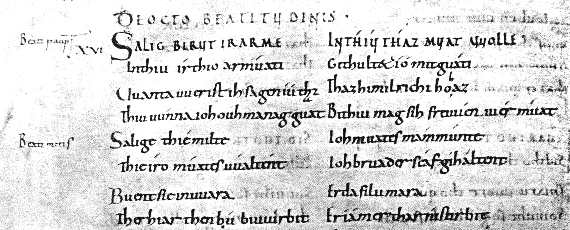 DE OCTO BEATITUDINIS.
Beati paup XVI SALIG BIRUT IR ARME IN THIU THAZ MUAT IZ UUOLLE.
In thiu ir thio armuati Githultet io mit guati
Uuanta iuuer ist ih sagen iu thaz Thaz himilrichi hohaz
Thiu uunna ioh ouh manag guat Bithiu mag sih frouuen iuuer muat
Beati mites Salige thie milte Ioh muates mammunte
Thie iro muates uualtent Ioh bruaderscaf gihaltent
Buent sie in uuara Erda filu mara
Ther hiar then bu biuuirbit Er iamer thar nirstirbit